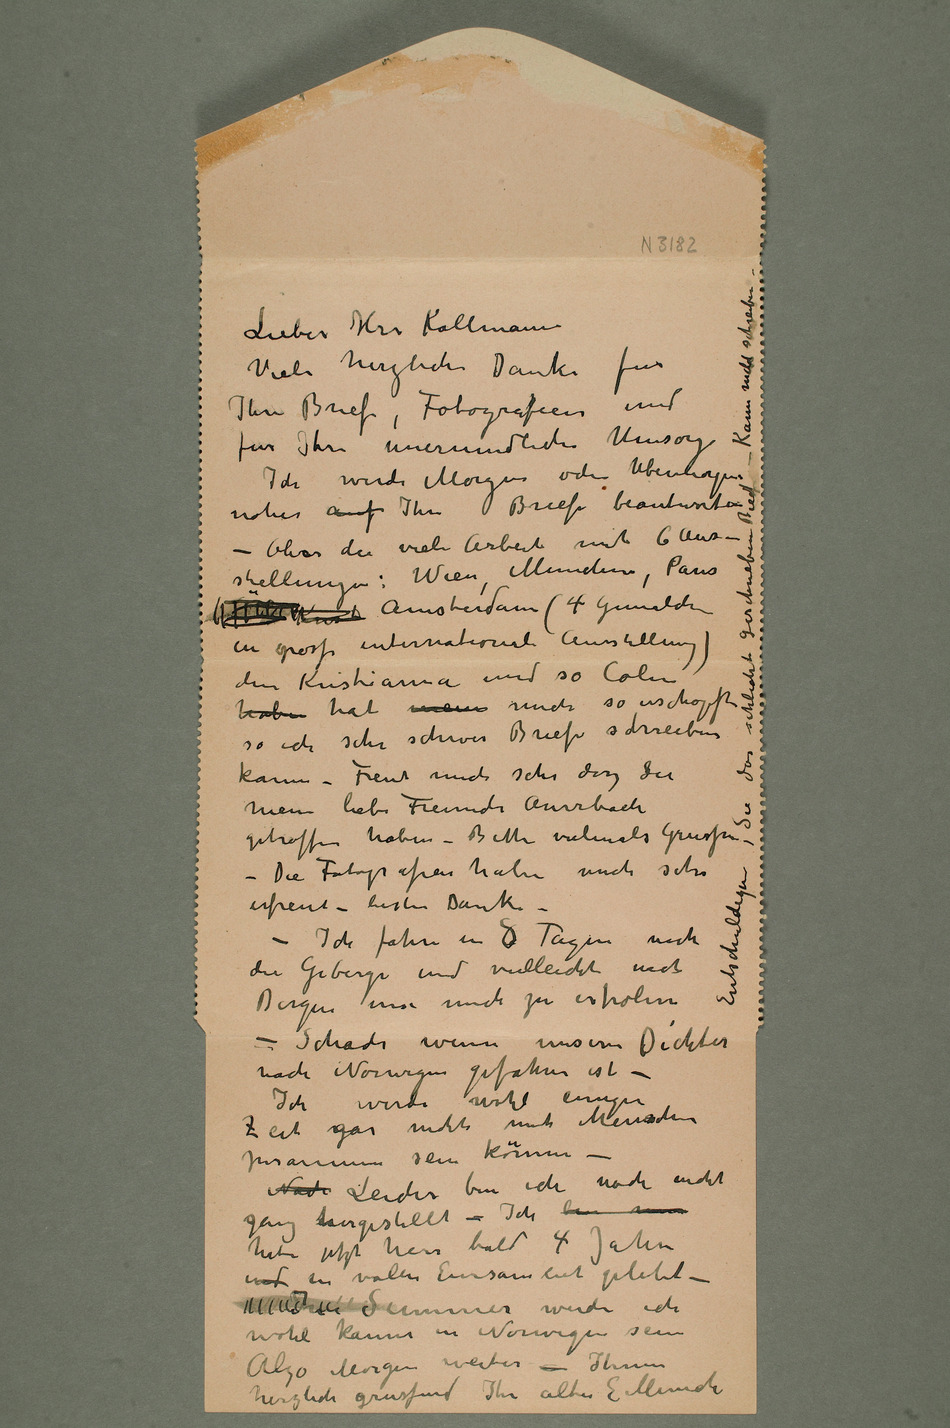 N3182
Lieber Herr Kollmann
Viele herzliche Danke fur
Ihre Briefe, Fotografieen und
fur Ihre unermudliche Umsorge
Ich werde Morgen oder Ubermorgen
noher auf Ihre Briefe beantworten
– Aber die viele Arbeit mit 6 Aus-
stellungen: Wien, Munchen, Paris
Amsterdam (4 Gemalde
in grosse international Ausstellung)
den Kristiania und so Coln
haben hat mein mich so erschopft
so ich sehr schwer Briefe schreiben
kann – Freut mich sehr das Sie
mein liebe Freunde Auerbach
getroffen haben – Bitte vielmals Grussen –
– Die Fotografien haben mich sehr
erfreut – besten Danke –
– Ich fahre in 8 Tagen nach
die Geberge und vielleicht nach
Bergen um mich zu erholen
– Schade wenn unsere Dichter
nach Norwegen gefahren ist –
Ich werde wohl einige
Zeit gar nicht mit Menschen
zusammen sein können –
Nach Leider bin ich noch nicht
ganz hergestellt – Ich bin nun
habe jetzt hier bald 4 Jahre
und in vollen Einsamkeit gelebt –
Summer werde ich
wohl kaum in Norwegen sein
Also Morgen weiter – Ihnen
herzlich grussend Ihr alter E Munch
Entschuldigen Sie das schlecht geschrieben Brief – Kann nicht schreiben –